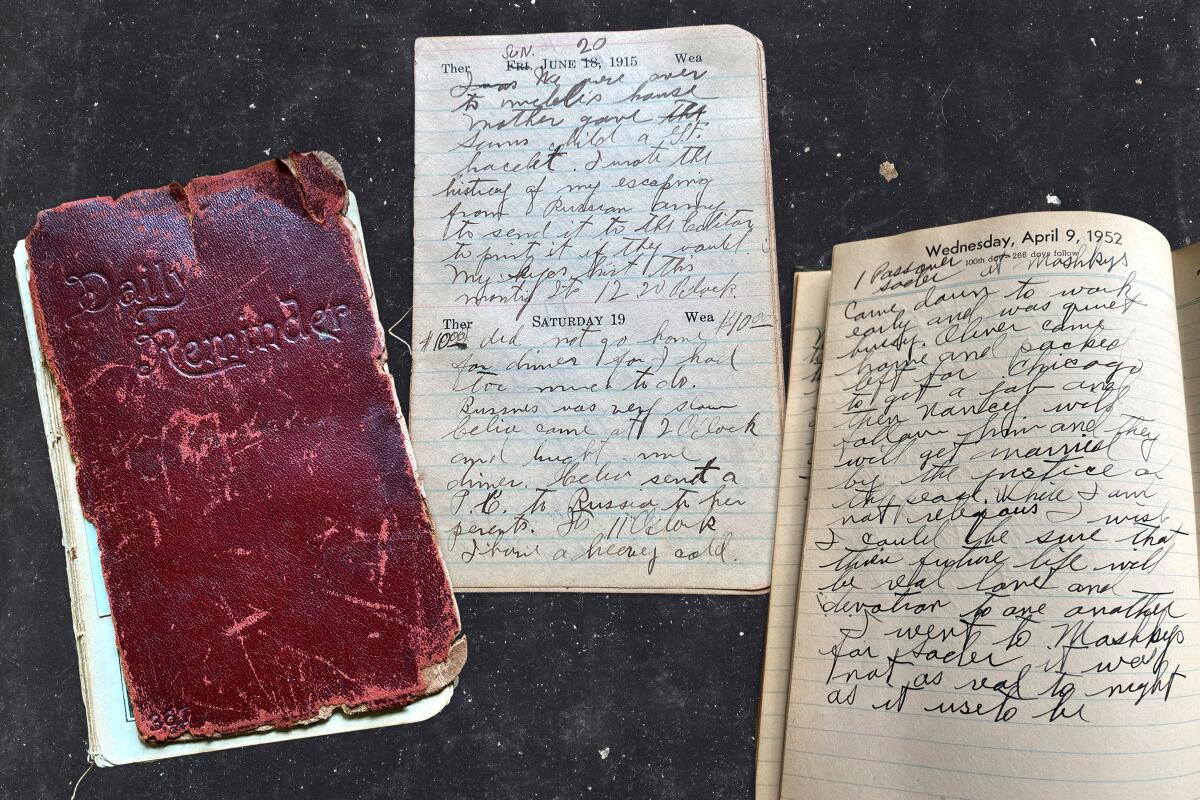 Daily
Reminder
387
SUN. 20
Ther FRI. JUNE 18, 1915 Wea
I was We were over
to house
Mother gave the
child a gft.
bracelet. I wrote the
history of my escaping
from Russian army
to send it to the Editor
to print it if they would.
My eyes hurt this
12 20 Oclock.
Ther SATURDAY 19 Wea
$10.00 did not go home $10.00
for dinner for I had
too much to do.
was very slow
Celia came at 2 O'Clock
and me
dinner. Celia sent a
P.C. to Russia to her
perents. Its 11 O'Clock
I have a heavy cold.
Wednesday, April 9, 1952
100th day—266 days follow
1 Passover
saeder at Mashkys
Came down to work
early and was quiet
busy. Oliver came
home and packed
off for Chicago
to get a job and
then Nancy will
follow him and they
will get married
by the justice of
the . While I am
not religious I wish
I could be sure that
their future life will
be real love and
devotion to one another
I went to Mashkys
for saeder it was
not as real to night
as it useto be